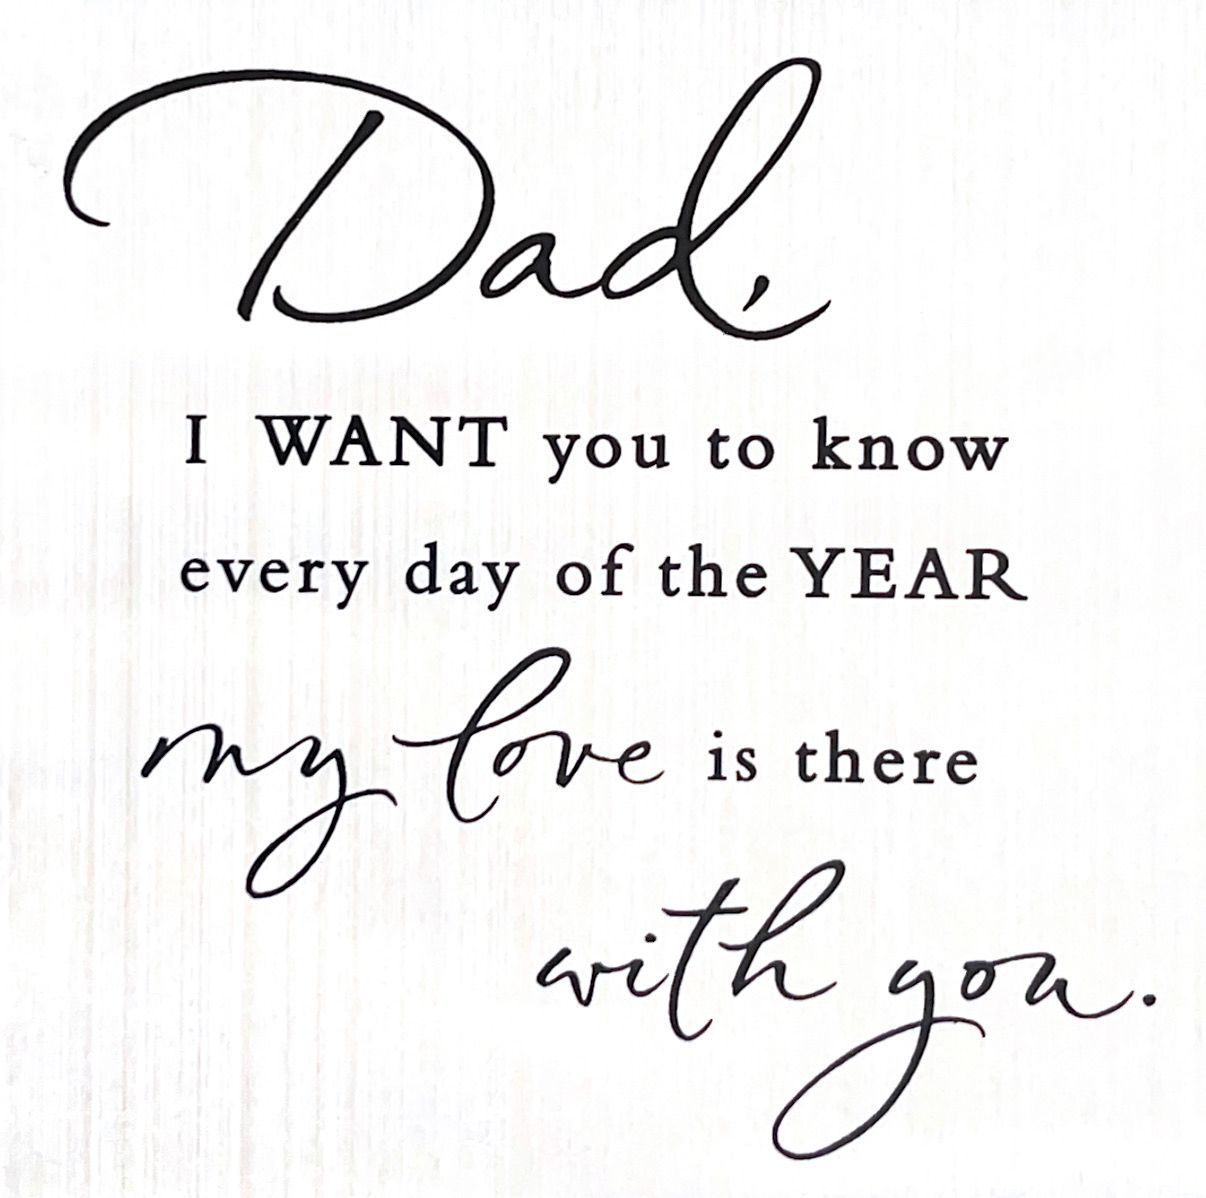 Dad,
I WANT you to know
every day of the YEAR
my love is there
with you.